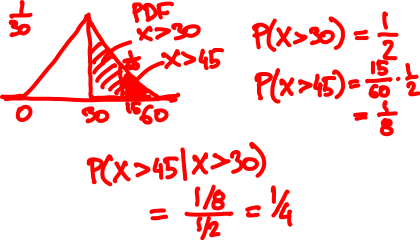 1/30
PDF
x>30
x>45
1/60
0 30 15 60
P(X>30) = 1/2
P(X>45) = 15/60 · 1/2
= 1/8
P(X>45|X>30)
= 1/8 / 1/2 = 1/4